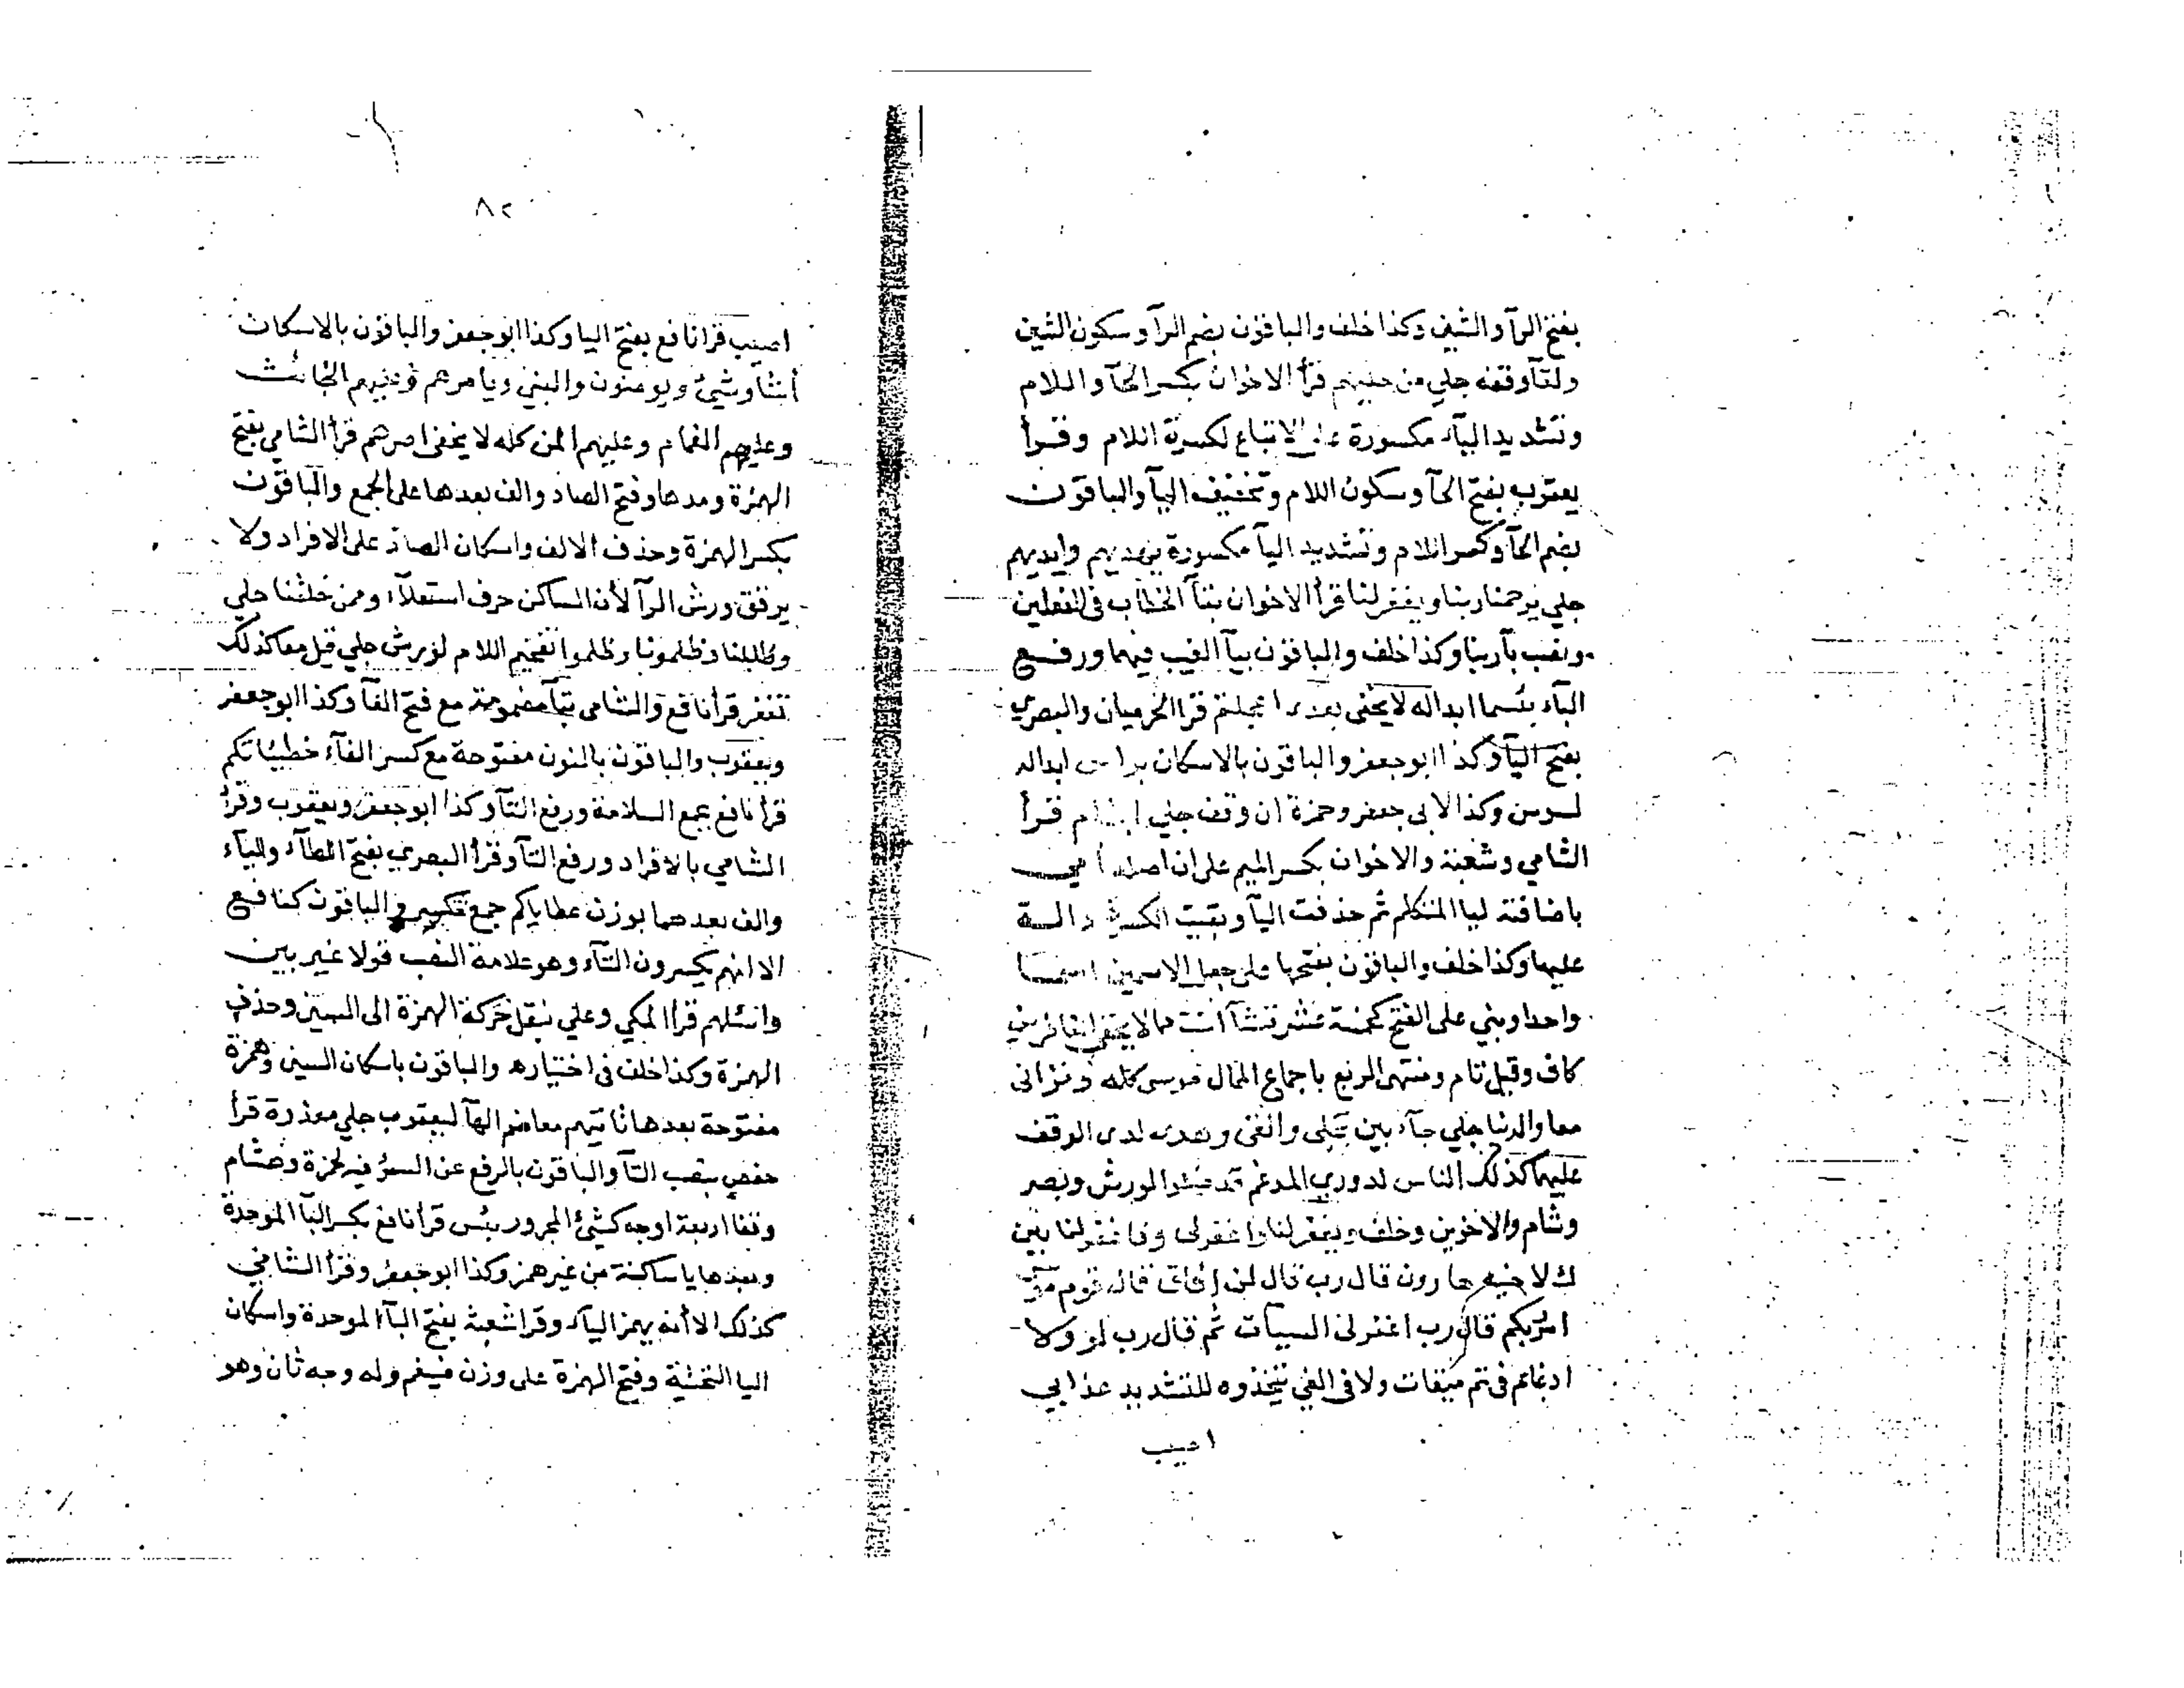 بفتح الرآ والشين وكذا خلف والباقون بضم الرآ وسكون الشين
ولقآ وقفه جلي من حليهم قرأ الاخوان بكسر الحآ واللام
وتشديد اليآء مكسورة على الاتباع لكسرة اللام وقرأ
يعقوب بفتح الحآ وسكون اللام وتخفيف اليآ والباقون
بضم الحآ وكسر اللام وتشديد اليآ مكسورة يهديهم وايديهم
جلي يرحمنا ربنا ويغفر لنا قرأ الاخوان بتآ الخطاب في الفعلين
ونصب بآ ربنا وكذا خلف والباقون بيآ الغيب فيهما ورفع
البآء بئسما ابداله لا يخفى بعدى اعجلتم قرا الحرميان والبصري
بفتح اليآ وكذا ابو جعفر والباقون بالاسكان براس ابداله
لسوس وكذا لابى جعفر وحمزة ان وقف جلي ابن ام قرأ
الشامي وشعبة والاخوان بكسر الميم على ان اصله أمي
باضافته ليا المتكلم ثم حذفت اليآ وبقيت الكسرة دالة
عليها وكذا خلف والباقون بفتحها على جعل الاسمين اسما
واحدا وبني على الفتح كخمسة عشر تشآ انت مما لا يخفى الغافرين
كاف وقيل تام ومنتهى الربع باجماع الممال موسى كله وترانى
معا والدنيا جلي جآء بين تجلى والقى وهدى لدى الوقف
عليهما كذلك الناس لدورى المدغم قد ضلوا لورش وبصر
وشام والاخوين وخلف ويغفر لنا واغفر لى وفاغفر لنا بين
ك لاخيه هارون قال رب قال لن افاق قال قوم موسى
امر ربكم قال رب اغفر لى السيآت ثم قال رب لو ولا
ادغام فى تم ميقات ولا فى الغي تتخذوه للتشديد عذابي
اصيب
٨٢
اصيب قرا نافع بفتح اليا وكذا ابو جعفر والباقون بالاسكان
أشآ وشيئ ويومنون والنبئ ويامرهم وعليهم الخبائث
وعليهم الغمام وعليهم المن كله لا يخفى اصرهم قرأ الشامي بفتح
الهمزة ومدها وفتح الصاد والف بعدها على الجمع والباقون
بكسر الهمزة وحذف الالف واسكان الصاد على الافراد ولا
يرقق ورش الرآ لأن الساكن حرف استعلآء وممن خلقنا جلي
وظللنا وظلمونا وظلموا تفخيم اللام لورش جلي قيل معا كذلك
تغفر قرأ نافع والشامى بتآ مضمومة مع فتح الفآ وكذا ابو جعفر
ويعقوب والباقون بالنون مفتوحة مع كسر الفآء خطيئاتكم
قرأ نافع بجمع السلامة ورفع التآ وكذا ابو جعفر ويعقوب وقرأ
الشامي بالافراد ورفع التآ وقرأ البصري بفتح الطآء واليآء
والف بعدهما بوزن عطاياكم جمع تكسير والباقون كنافع
الا انهم يكسرون التآء وهو علامة النصب قولا غير بين
واسئلهم قرأ المكي وعلي بنقل حركة الهمزة الى السين وحذف
الهمزة وكذا خلف فى اختياره والباقون باسكان السين وهمزة
مفتوحة بعدها تاتيهم معا ضم الهآ ليعقوب جلي معذرة قرأ
حفص بنصب التآ والباقون بالرفع عن السوء فيه لحمزة وهشام
وقفا اربعة اوجه كشيئ المجرور بئس قرأ نافع بكسر البآ الموحدة
وبعدها يا ساكنة من غير همز وكذا ابو جعفر وقرأ الشامي
كذلك الا أنه بهمز اليآء وقرا شعبة بفتح البآ الموحدة واسكان
اليا التحتية وفتح الهمزة على وزن ضيغم وله وجه ثان وهو